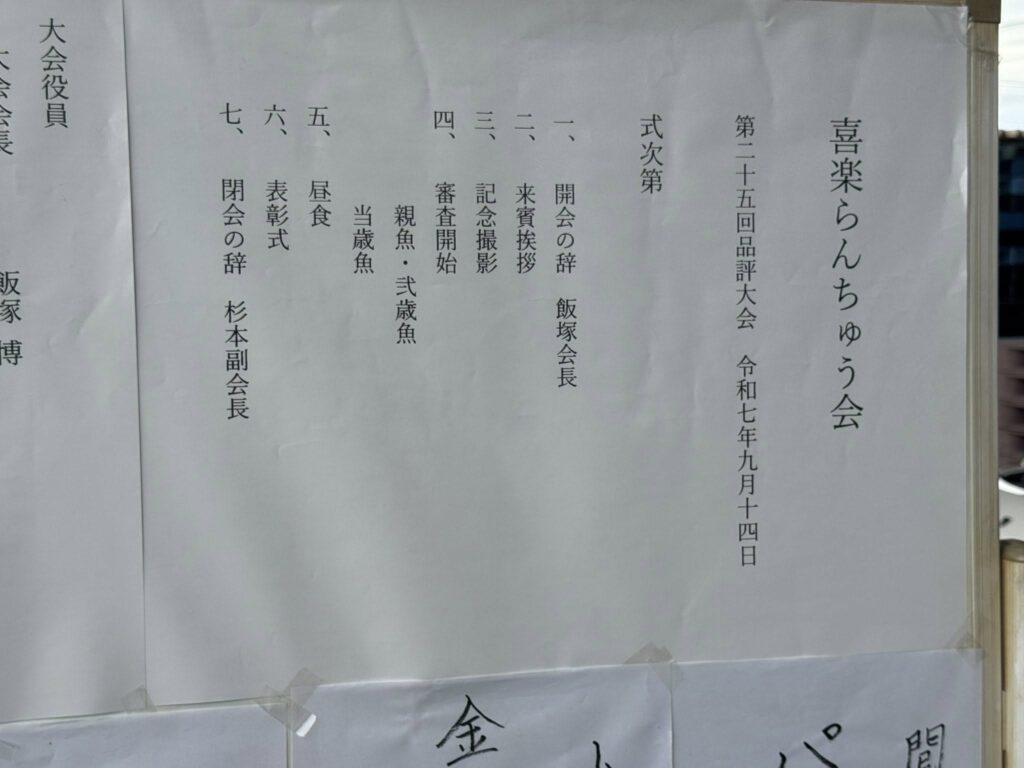 喜楽らんちゅう会
第二十五回品評大会　令和七年九月十四日
式次第
一、　開会の辞　飯塚会長
二、　来賓挨拶
三、　記念撮影
四、　審査開始
親魚・弐歳魚
当歳魚
五、　昼食
六、　表彰式
七、　閉会の辞　杉本副会長
大会役員
大会会長　飯塚　博
金